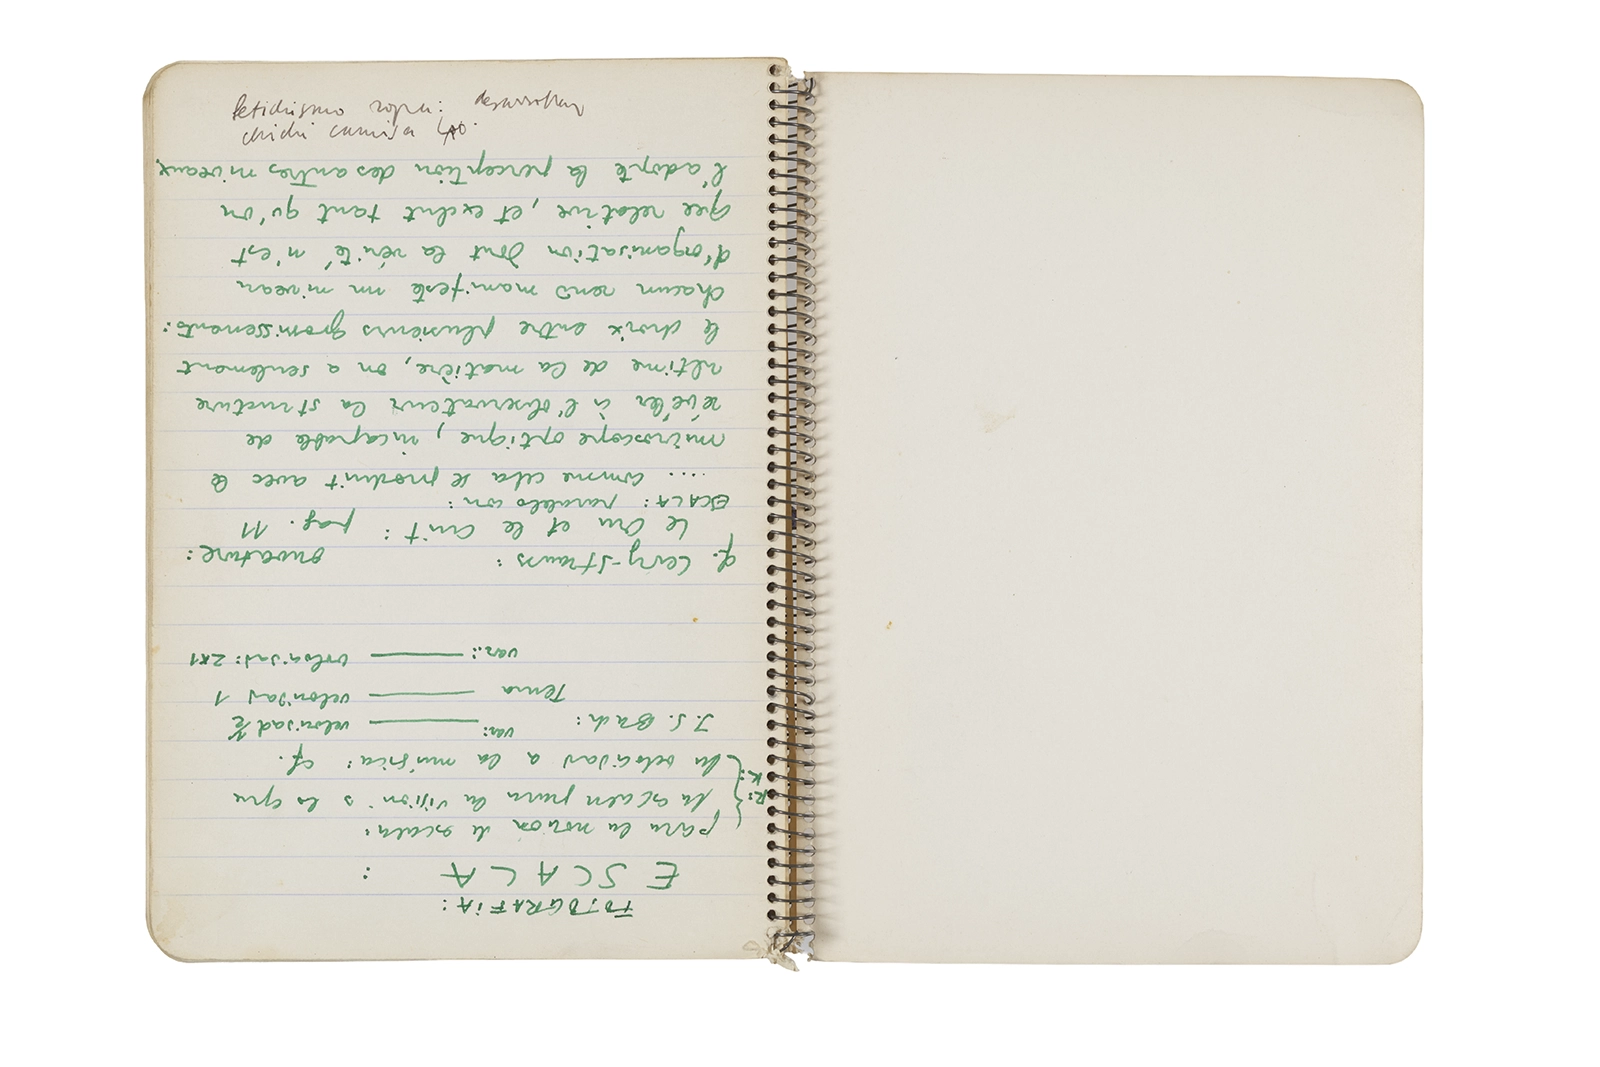 fetichismo ropa: desarrollar
chichi camisa
FOTOGRAFIA:
ESCALA :
para la noción de escala:
R: la escala para la visión s lo que
K: la velocidad a la música: cf.
J. S. Bach: var: ——— velocidad 1/2
Tema ——— velocidad 1
var.: ——— velocidad: 2x1
cf. Levy-Strauss: ouverture:
Le Cru et le Cuit: pag. 11
ESCALA: paralelo con:
.... comme cela se produit avec le
microscope optique, incapable de
révéler à l'observateur la structure
ultime de la matière, on a seulement
le choix entre plusieurs grossissements:
chacun rend manifeste un niveau
d'organisation dont la vérité n'est
que relative, et exclut tant qu'on
l'adopte la perception des autres niveaux.